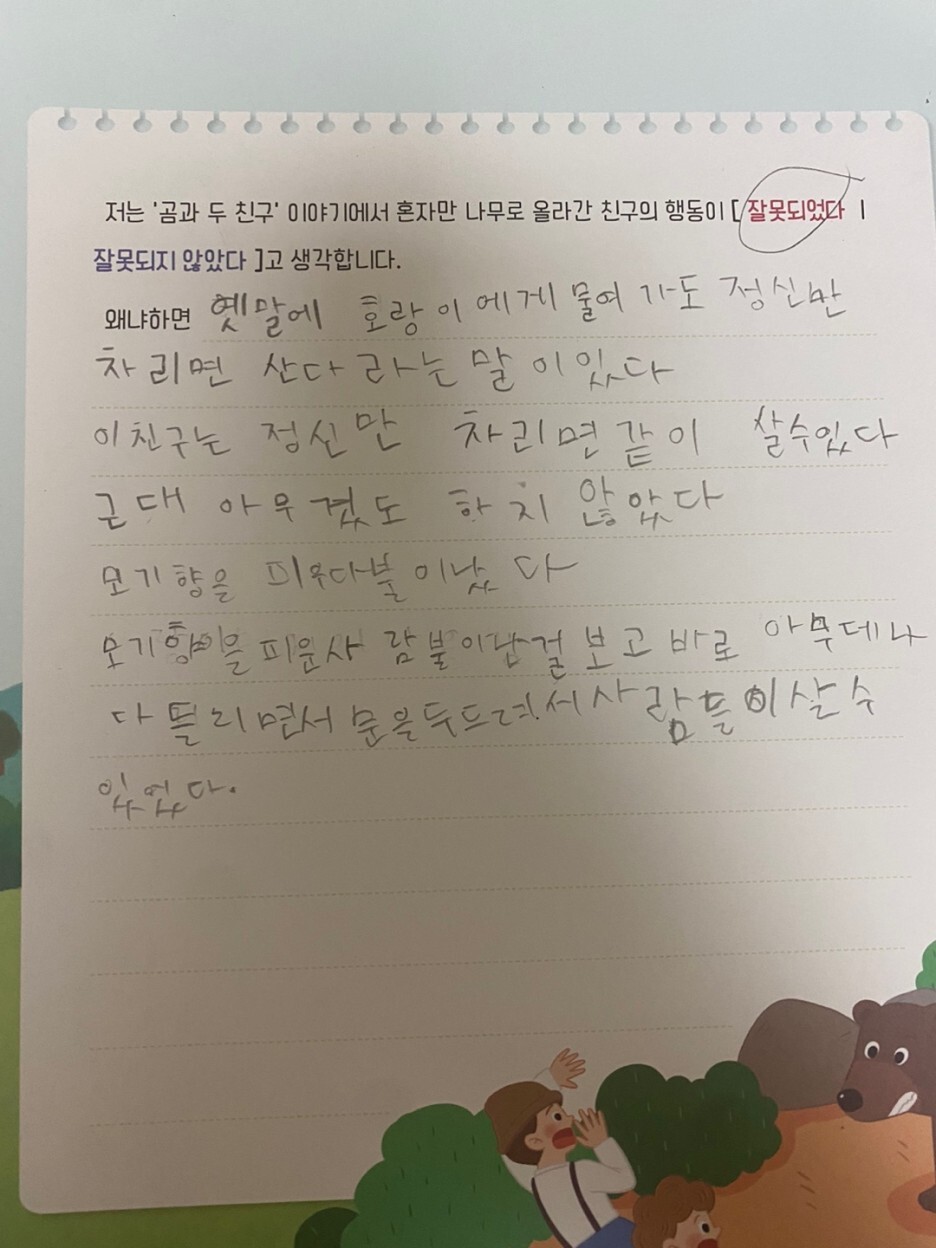 저는 '곰과 두 친구' 이야기에서 혼자만 나무로 올라간 친구의 행동이 [ 잘못되었다 |
잘못되지 않았다 ]고 생각합니다.
왜냐하면 옛말에 호랑이에게 물여 가도 정신만
차리면 산다 라는 말이있다
이친구는 정신만 차리면같이 살수있다
근대 아무겄도 하지 않았다
모기향을 피우다불이났다
모기향을피운사람불이남걸 보고 바로 아무데나
다 들리면서 문을두드려서사람들이살수
있었다.